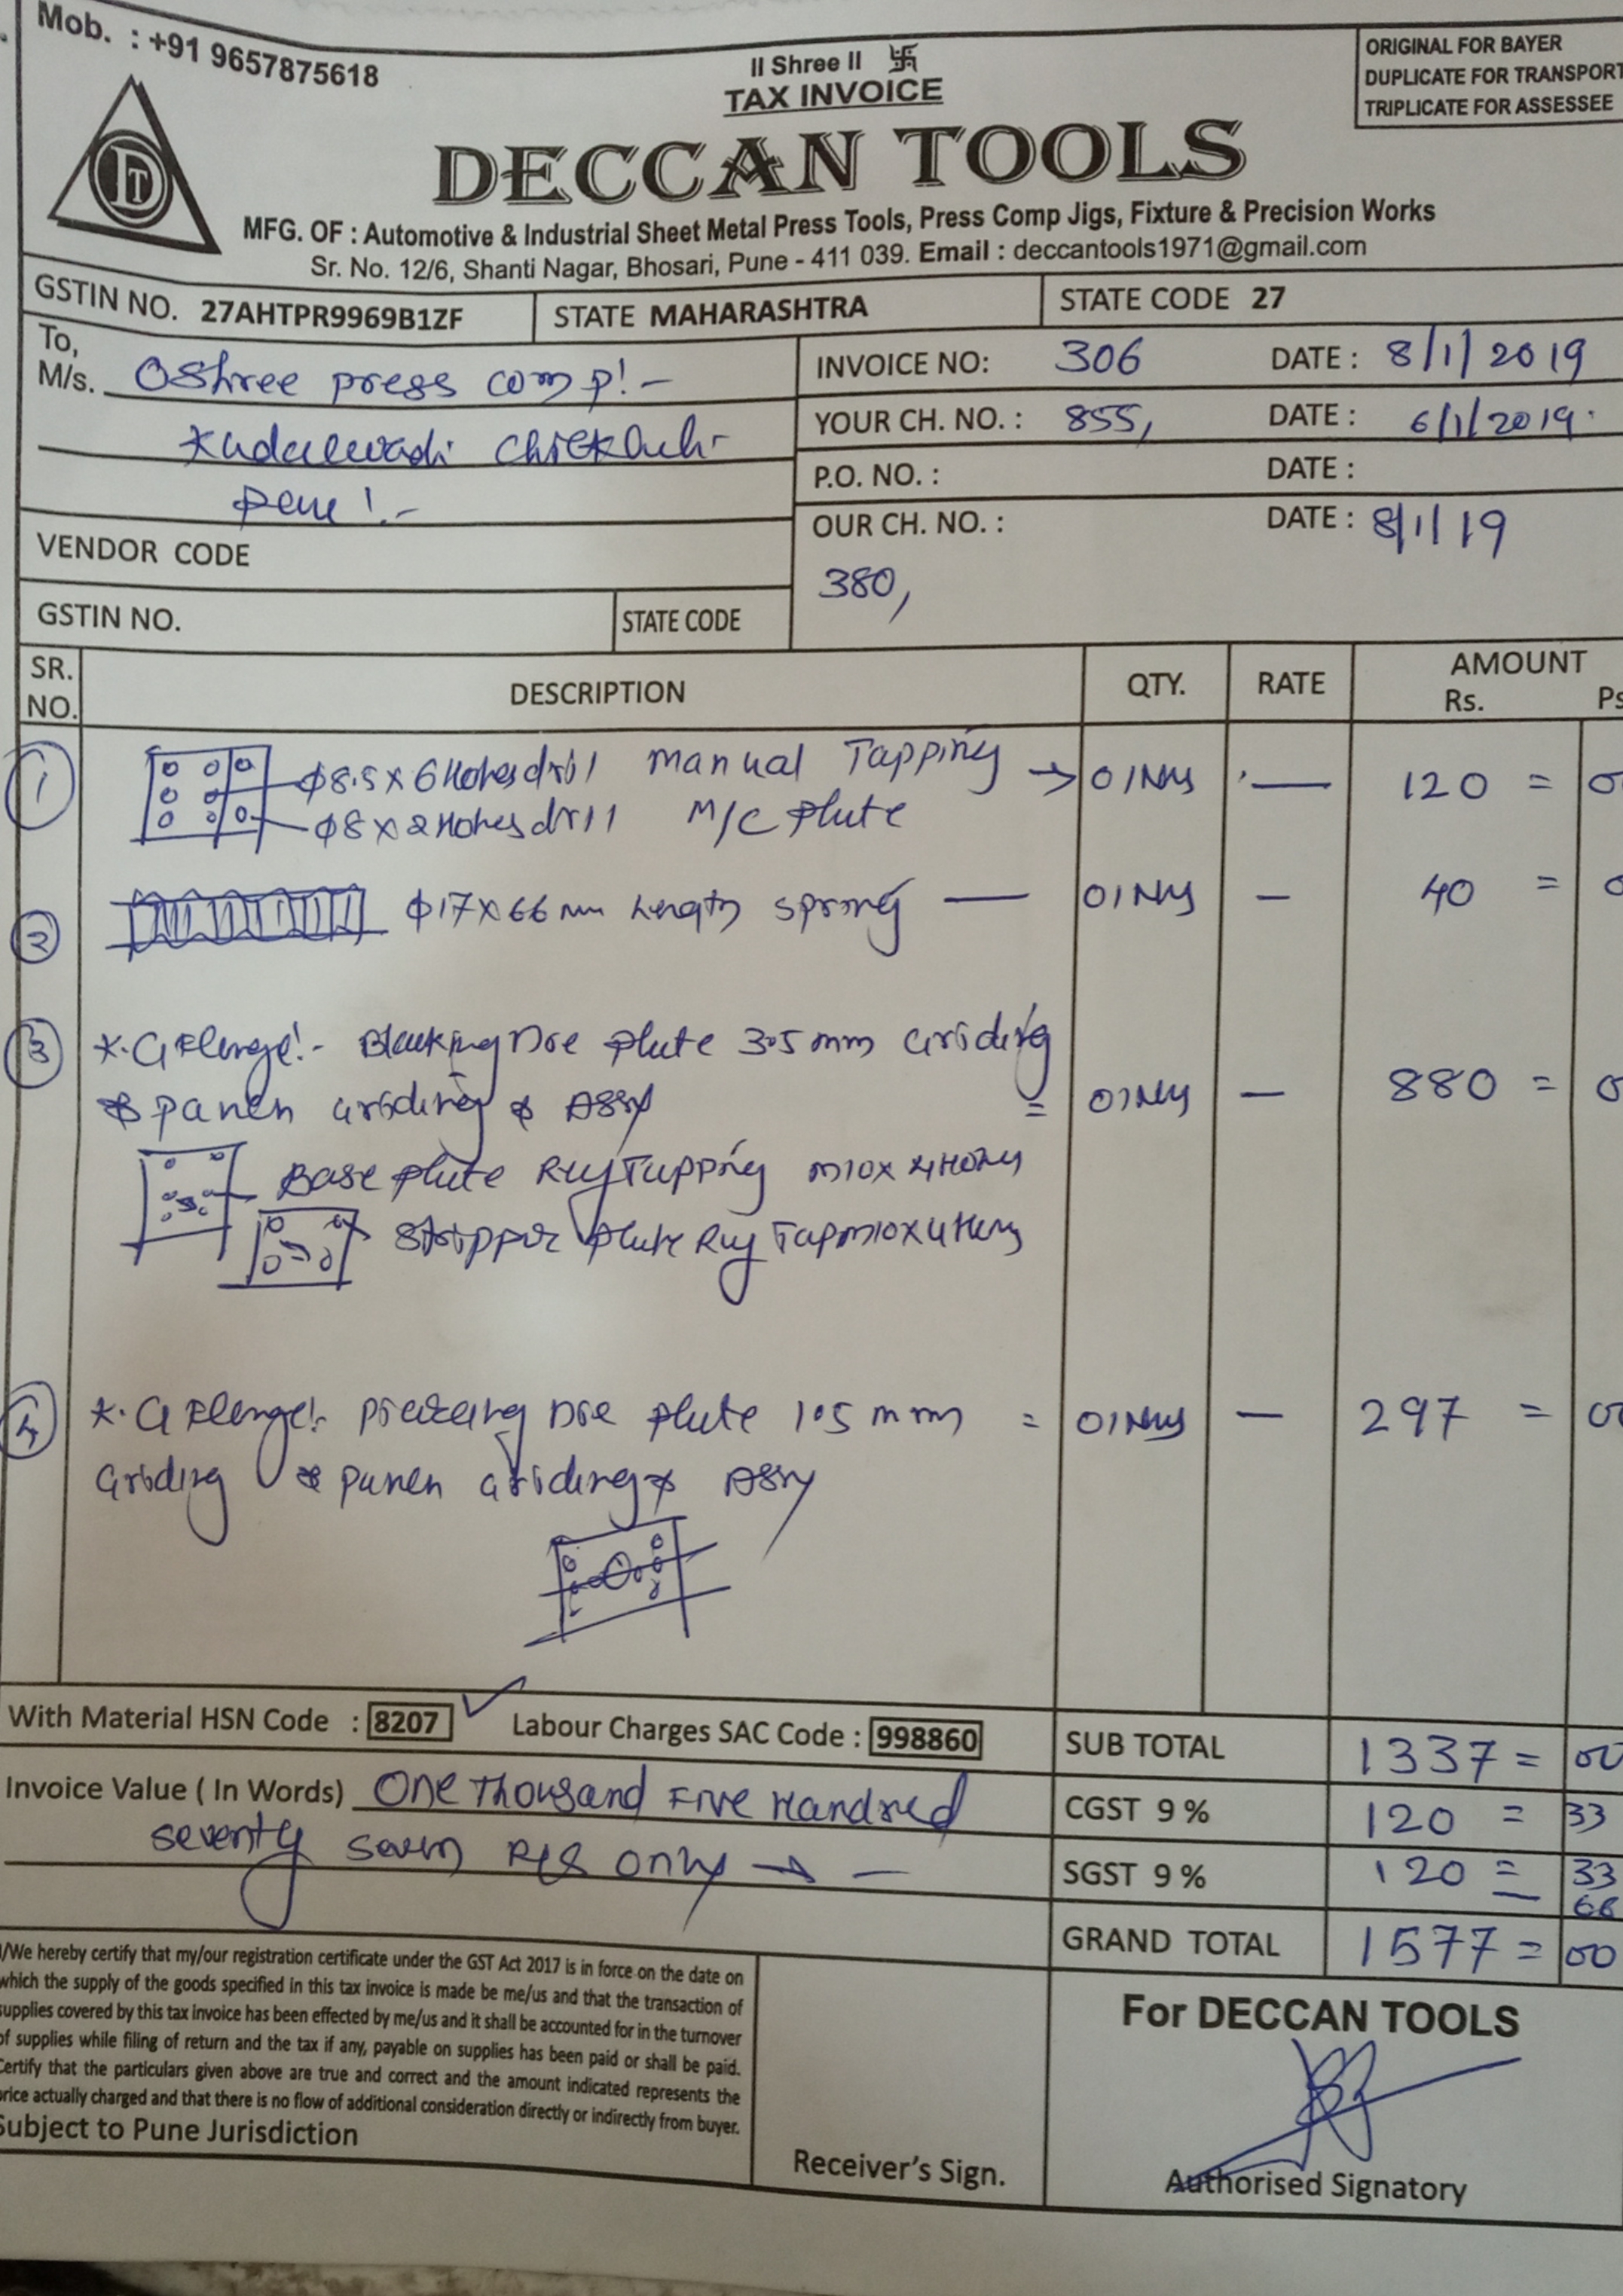 Mob. : +91 9657875618
II Shree II 卐
TAX INVOICE
ORIGINAL FOR BAYER
DUPLICATE FOR TRANSPORT
TRIPLICATE FOR ASSESSEE
DT
DECCAN TOOLS
MFG. OF : Automotive & Industrial Sheet Metal Press Tools, Press Comp Jigs, Fixture & Precision Works
Sr. No. 12/6, Shanti Nagar, Bhosari, Pune - 411 039. Email : deccantools1971@gmail.com
GSTIN NO. 27AHTPR9969B1ZF STATE MAHARASHTRA STATE CODE 27
To,
M/s. Oshree press comp!-
pune!.-
INVOICE NO: 306 DATE : 8/1/2019
YOUR CH. NO. : 855, DATE : 6/1/2019.
P.O. NO. : DATE :
OUR CH. NO. : DATE : 8/1/19
380,
VENDOR CODE
GSTIN NO. STATE CODE
SR. NO. DESCRIPTION QTY. RATE AMOUNT
Rs. Ps
1 φ8.5 x 6 Holes drill manual Tapping → 01Nos — 120 = 0
φ8 x 2 Holes drill M/C plate
2 φ17x66 mm Length spring — 01Nos — 40 = 0
3 *. G Flenge!- Blanking Die plate 3.5 mm Griding
& panch Griding & Assy = 01Nos — 880 = 0
Base plate Tapping m10x 4Holes
Stripper plate Tap m10x4Holes
4 *. G Flenge!- Die plate 1.5 mm = 01Nos — 297 = 00
Griding & panch Griding & Assy
With Material HSN Code : 8207 ✓ Labour Charges SAC Code : 998860
SUB TOTAL 1337 = 00
Invoice Value ( In Words) One Thousand Five Handred
seventy seven Rs only → —
CGST 9 % 120 = 33
SGST 9 % 120 = 33
66
GRAND TOTAL 1577 = 00
I/We hereby certify that my/our registration certificate under the GST Act 2017 is in force on the date on
which the supply of the goods specified in this tax invoice is made be me/us and that the transaction of
supplies covered by this tax invoice has been effected by me/us and it shall be accounted for in the turnover
of supplies while filing of return and the tax if any, payable on supplies has been paid or shall be paid.
Certify that the particulars given above are true and correct and the amount indicated represents the
price actually charged and that there is no flow of additional consideration directly or indirectly from buyer.
Subject to Pune Jurisdiction
Receiver's Sign.
For DECCAN TOOLS
Authorised Signatory